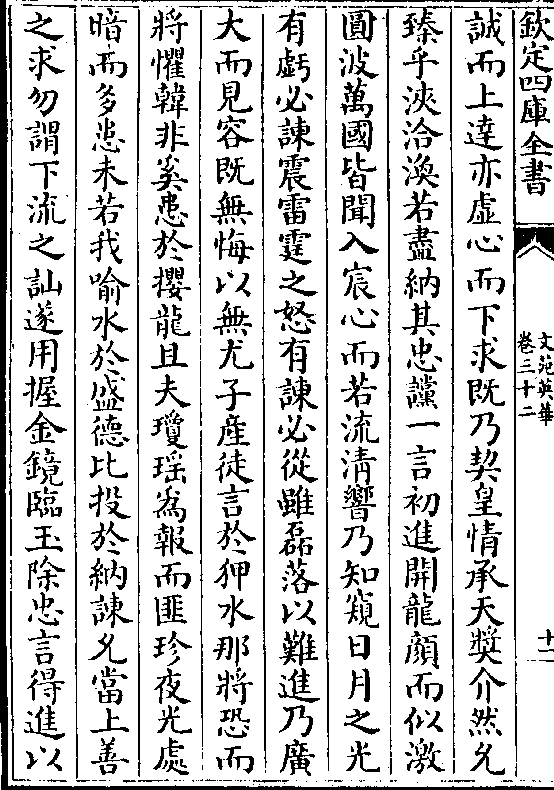 欽定四庫全書
文苑英華
卷三十二
十一
誠而上達亦虛心而下求既乃契皇情承天奬介然允
臻乎浹洽渙若盡納其忠讜一言初進開龍顔而似激
圓波萬國皆聞入宸心而若流清響乃知窺日月之光
有虧必諫震雷霆之怒有諫必從雖磊落以難進乃廣
大而見容既無悔以無尤子産徒言於狎水那將恐而
將懼韓非奚患於攖龍且夫瓊瑶為報而匪珍夜光處
暗而多忿未若我喻水於盛德比投於納諫允當上善
之求勿謂下流之訕遂用握金鏡臨玉除忠言得進以